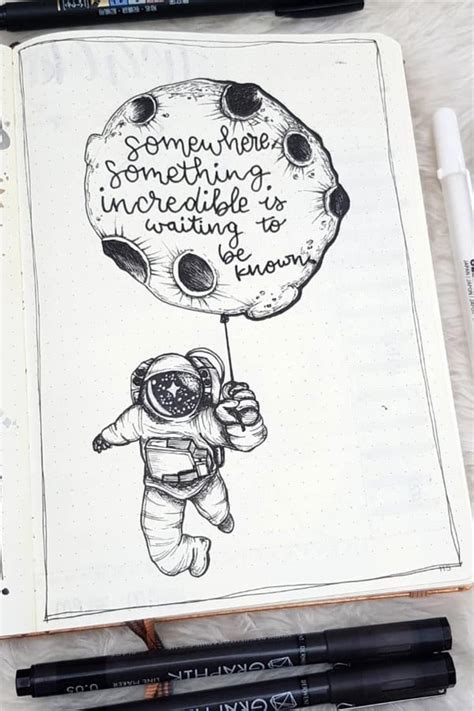 somewhere,
something
incredible is
waiting to
be
known.
115
0.05
LINE MAKER
GRAPHIK
GRAPHIK